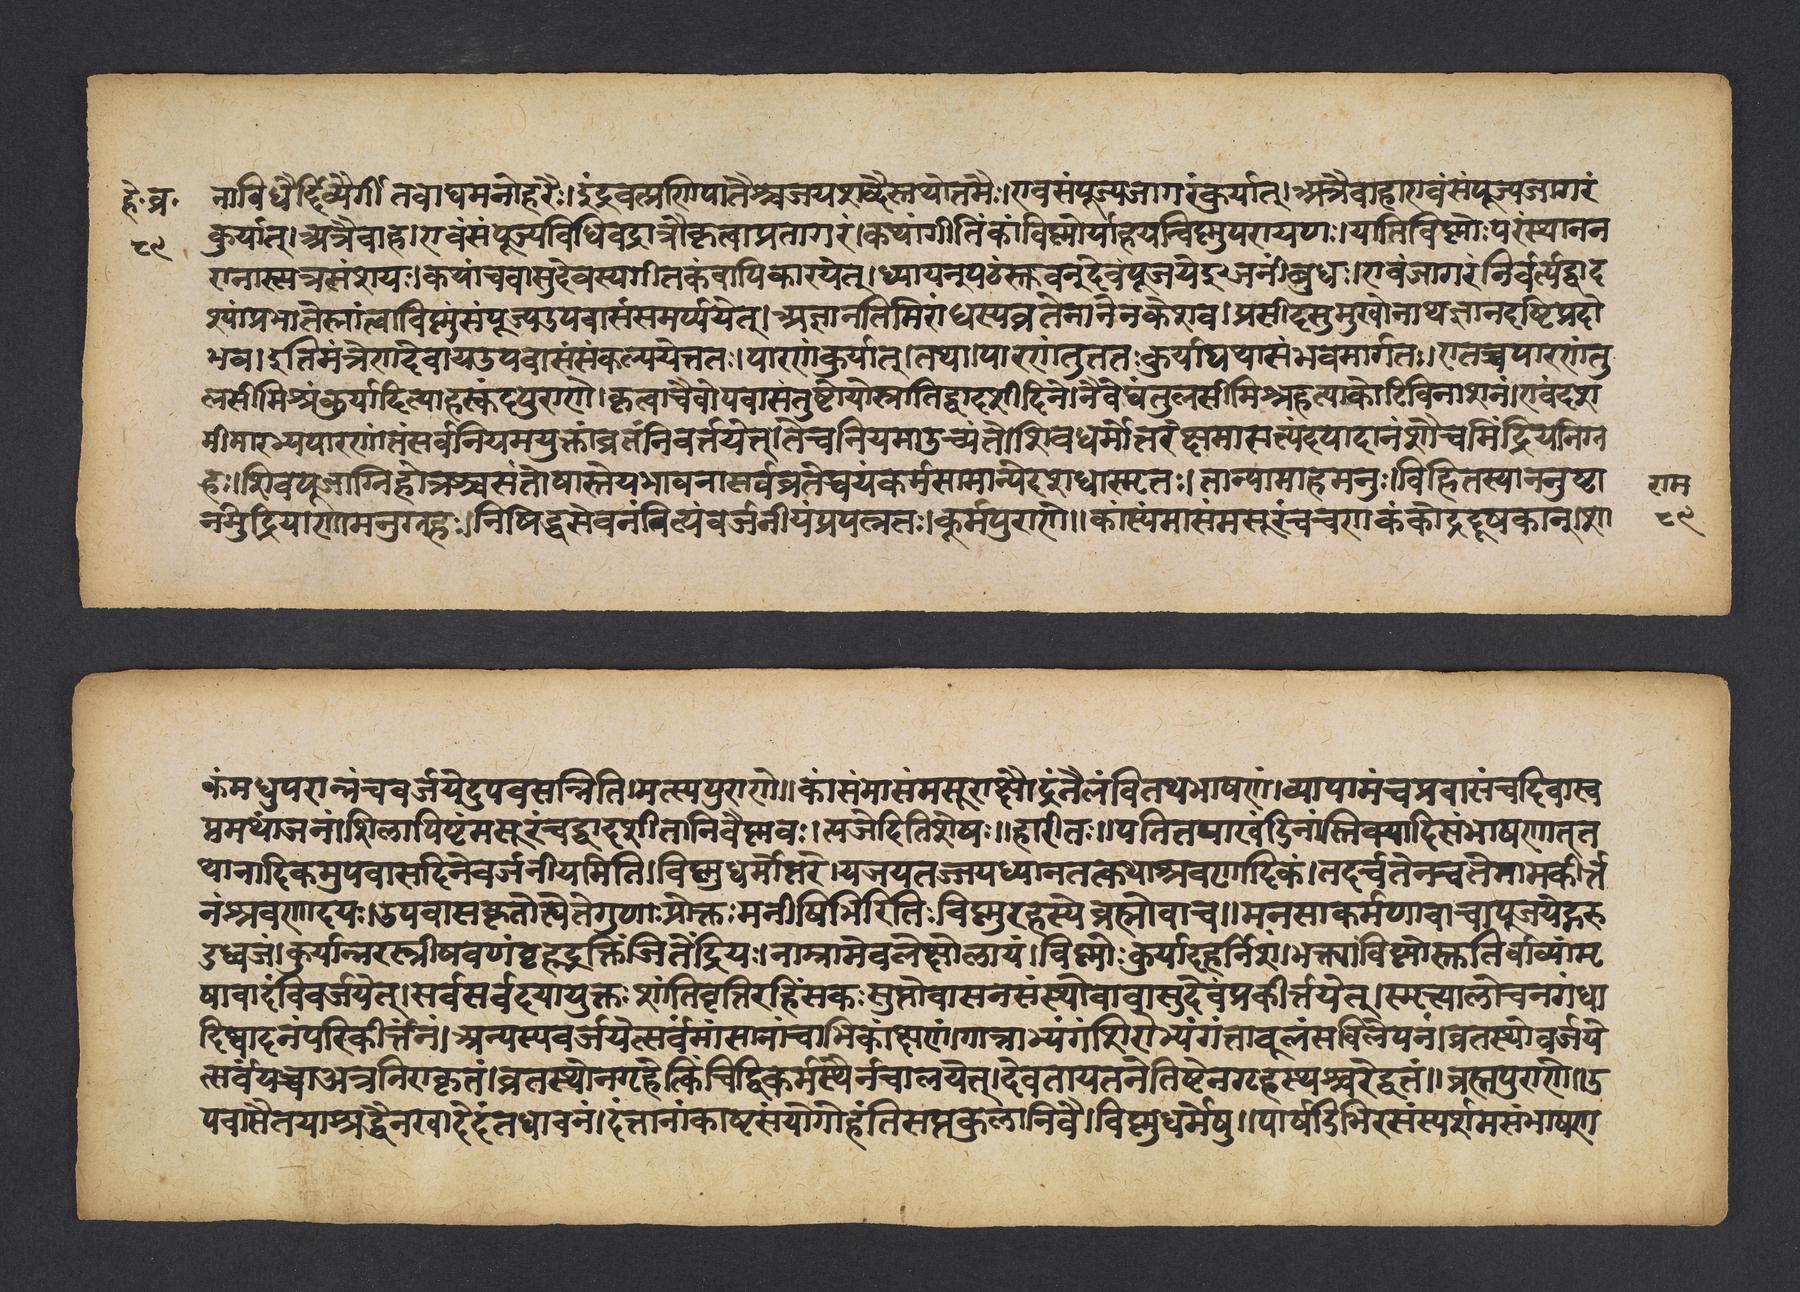 हे॰ व्र॰
८९
नाविधैर्दिव्यैर्गीतवाद्यमनोहरैः।दंडवत्प्रणिपातैश्चजयशब्दैस्तथोत्तमैः।एवसंपूज्यजागरंकुर्यात्।अत्रैवाह।एवंसंपूज्यजागरं
कुर्यात्।अत्रैवाह।एवंसंपूज्यविधिवद्रात्रौकृत्वाप्रजागरं।कथांगीतिंकांविष्णोर्याहयन्विष्णुपरायणः।यातिविष्णोःपरंस्थानन
रानास्सत्रसंशयः।कथांचवासुदेवस्यगीतकंवापिकारयेत्।ध्यायन्पठंस्तुवन्देवंपूजयेद्रजनींबुधः।एवंजागरंनिर्वर्त्यद्वाद
श्यांप्रभातेस्नात्वाविष्णुंसंपूज्यउपवासंसमर्प्पयेत्।अज्ञानतिमिरांधस्यव्रतेनानेनकेशव।प्रसीदसुमुखोनाथज्ञानदृष्टिप्रदो
भव।इतिमंत्रेणदेवायउपवासंसंकल्पयेत्ततः।पारणंकुर्यात्।तथा।पारणंतुततःकुर्याद्यथासंभवमार्गतः।एतच्चपारणंतु
लसीमिश्रंकुर्यादित्याहस्कंदपुराणे।कृत्वाचैवोपवासंतुष्टोयोस्नातिद्वादशीदिने।नैवेद्यंतुलसीमिश्रहत्याकोटिविनाशनं।एवंदश
मीमारभ्यपारणांतंसर्वनियमयुक्तंव्रतंनिवर्त्तयेत्।तेचनियमाउच्यंते।शिवधर्मोत्तरेक्षमासत्यंदयादानंशौचमिंद्रियनिग्र
हः।शिवपूजाग्निहोत्रश्चसंतोषास्तेयभावनासर्वव्रतेष्वयंकर्मसामान्येदशधास्मृतः।तान्यामाहमनुः।विहितस्याननुष्टा
नमुंद्रियाणामनुग्रहः।निषिद्धसेवनंनित्यंवर्जनीयंप्रयत्नतः।कूर्मपुराणे॥कांस्यंमासंमसूरंचचणकंकोद्रदूषकान्।शा
राम
८९
कंमधुपरान्नंचवर्जयेदुपवसन्निति।मत्स्यपुराणे॥कांसंमासंमसूराक्षौद्रंतैलंवितथभाषणं।व्यायामंचप्रवासंचदिवास्व
प्नमथांजनं।शिलापिष्टंमसूरंचद्वादशीतानिवैष्णवः।त्यजेदितिशेषः॥हारीतः॥पतितपाखंडिनास्तिक्यादिसंभाषणातृत
थानादिकमुपवासदिनेवर्जनीयमिति।विष्णुधर्मोत्तरे।यजयतज्जयध्यानतत्कथाश्रवणादिकं।तदर्च्चतेनच्चतेनामकीर्त्त
नंश्रवणादयः।उपवासकृतोस्येतेगुणाःप्रोक्तःमनीषिभिरितिःविष्णुरहस्येव्रत्नोवाच॥मनसाकर्मणावाचापूजयेद्गरु
डध्वजं।कुर्यान्नरस्त्रीषवणंवृहद्रक्तिंजितेंद्रियः।नाम्नामेवलेष्णोलायं।विष्णोःकुर्यादहर्निशं।भक्त्यांविष्णोस्तुतिर्वाव्यांमृ
षावादंविवर्जयेत्।सर्वसर्वदयायुक्तःशांतिवृत्तिरहिंसकःसुप्तोवासनसंस्थोवावासुदेवंप्रकीर्त्तयेत्।स्मृत्यालोचनगंधा
दिष्वादनंपरिकीर्त्तनं।अन्यस्यवर्जयेत्सर्वंमांसानांचाभिकांक्षणं।गात्राभ्यंगंशिरोभ्यंगंत्तांवूलंसविलेपनं।व्रतस्थोवर्जये
त्सर्वंयच्चाअत्रनिराकृतं।व्रतस्थोनगृहेत्किंचिद्विकर्मस्थैर्नचालयेत्।देवतायतनेतिष्टेनगृहस्यश्चरेद्व्रतं॥व्रह्मपुराणे॥उ
पवासेतथाश्रद्धेनखादेदंतधावनं।दंत्तानांकाष्टसंयोगोहंतिसप्तकुलानिवै।विष्णुधर्मेषु॥पार्षंडिभिरसंस्पर्शमसंभाषण